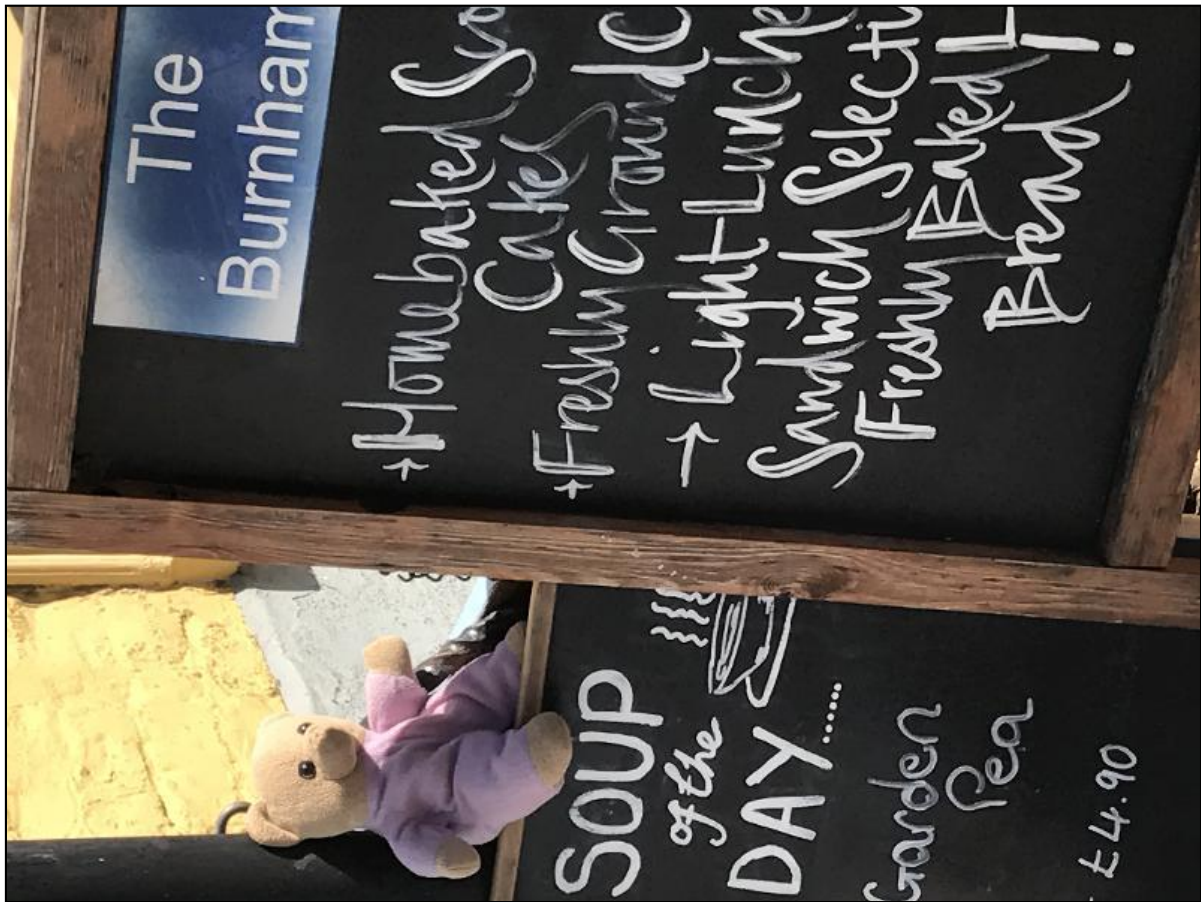 The
Burnham
→Homebaked Swe
Cakes
→Freshly Ground C
→ Light Lunche
Sandwich Selecti
Freshly Baked L
Bread!
SOUP
of the
DAY......
Garden
Pea
£4.90